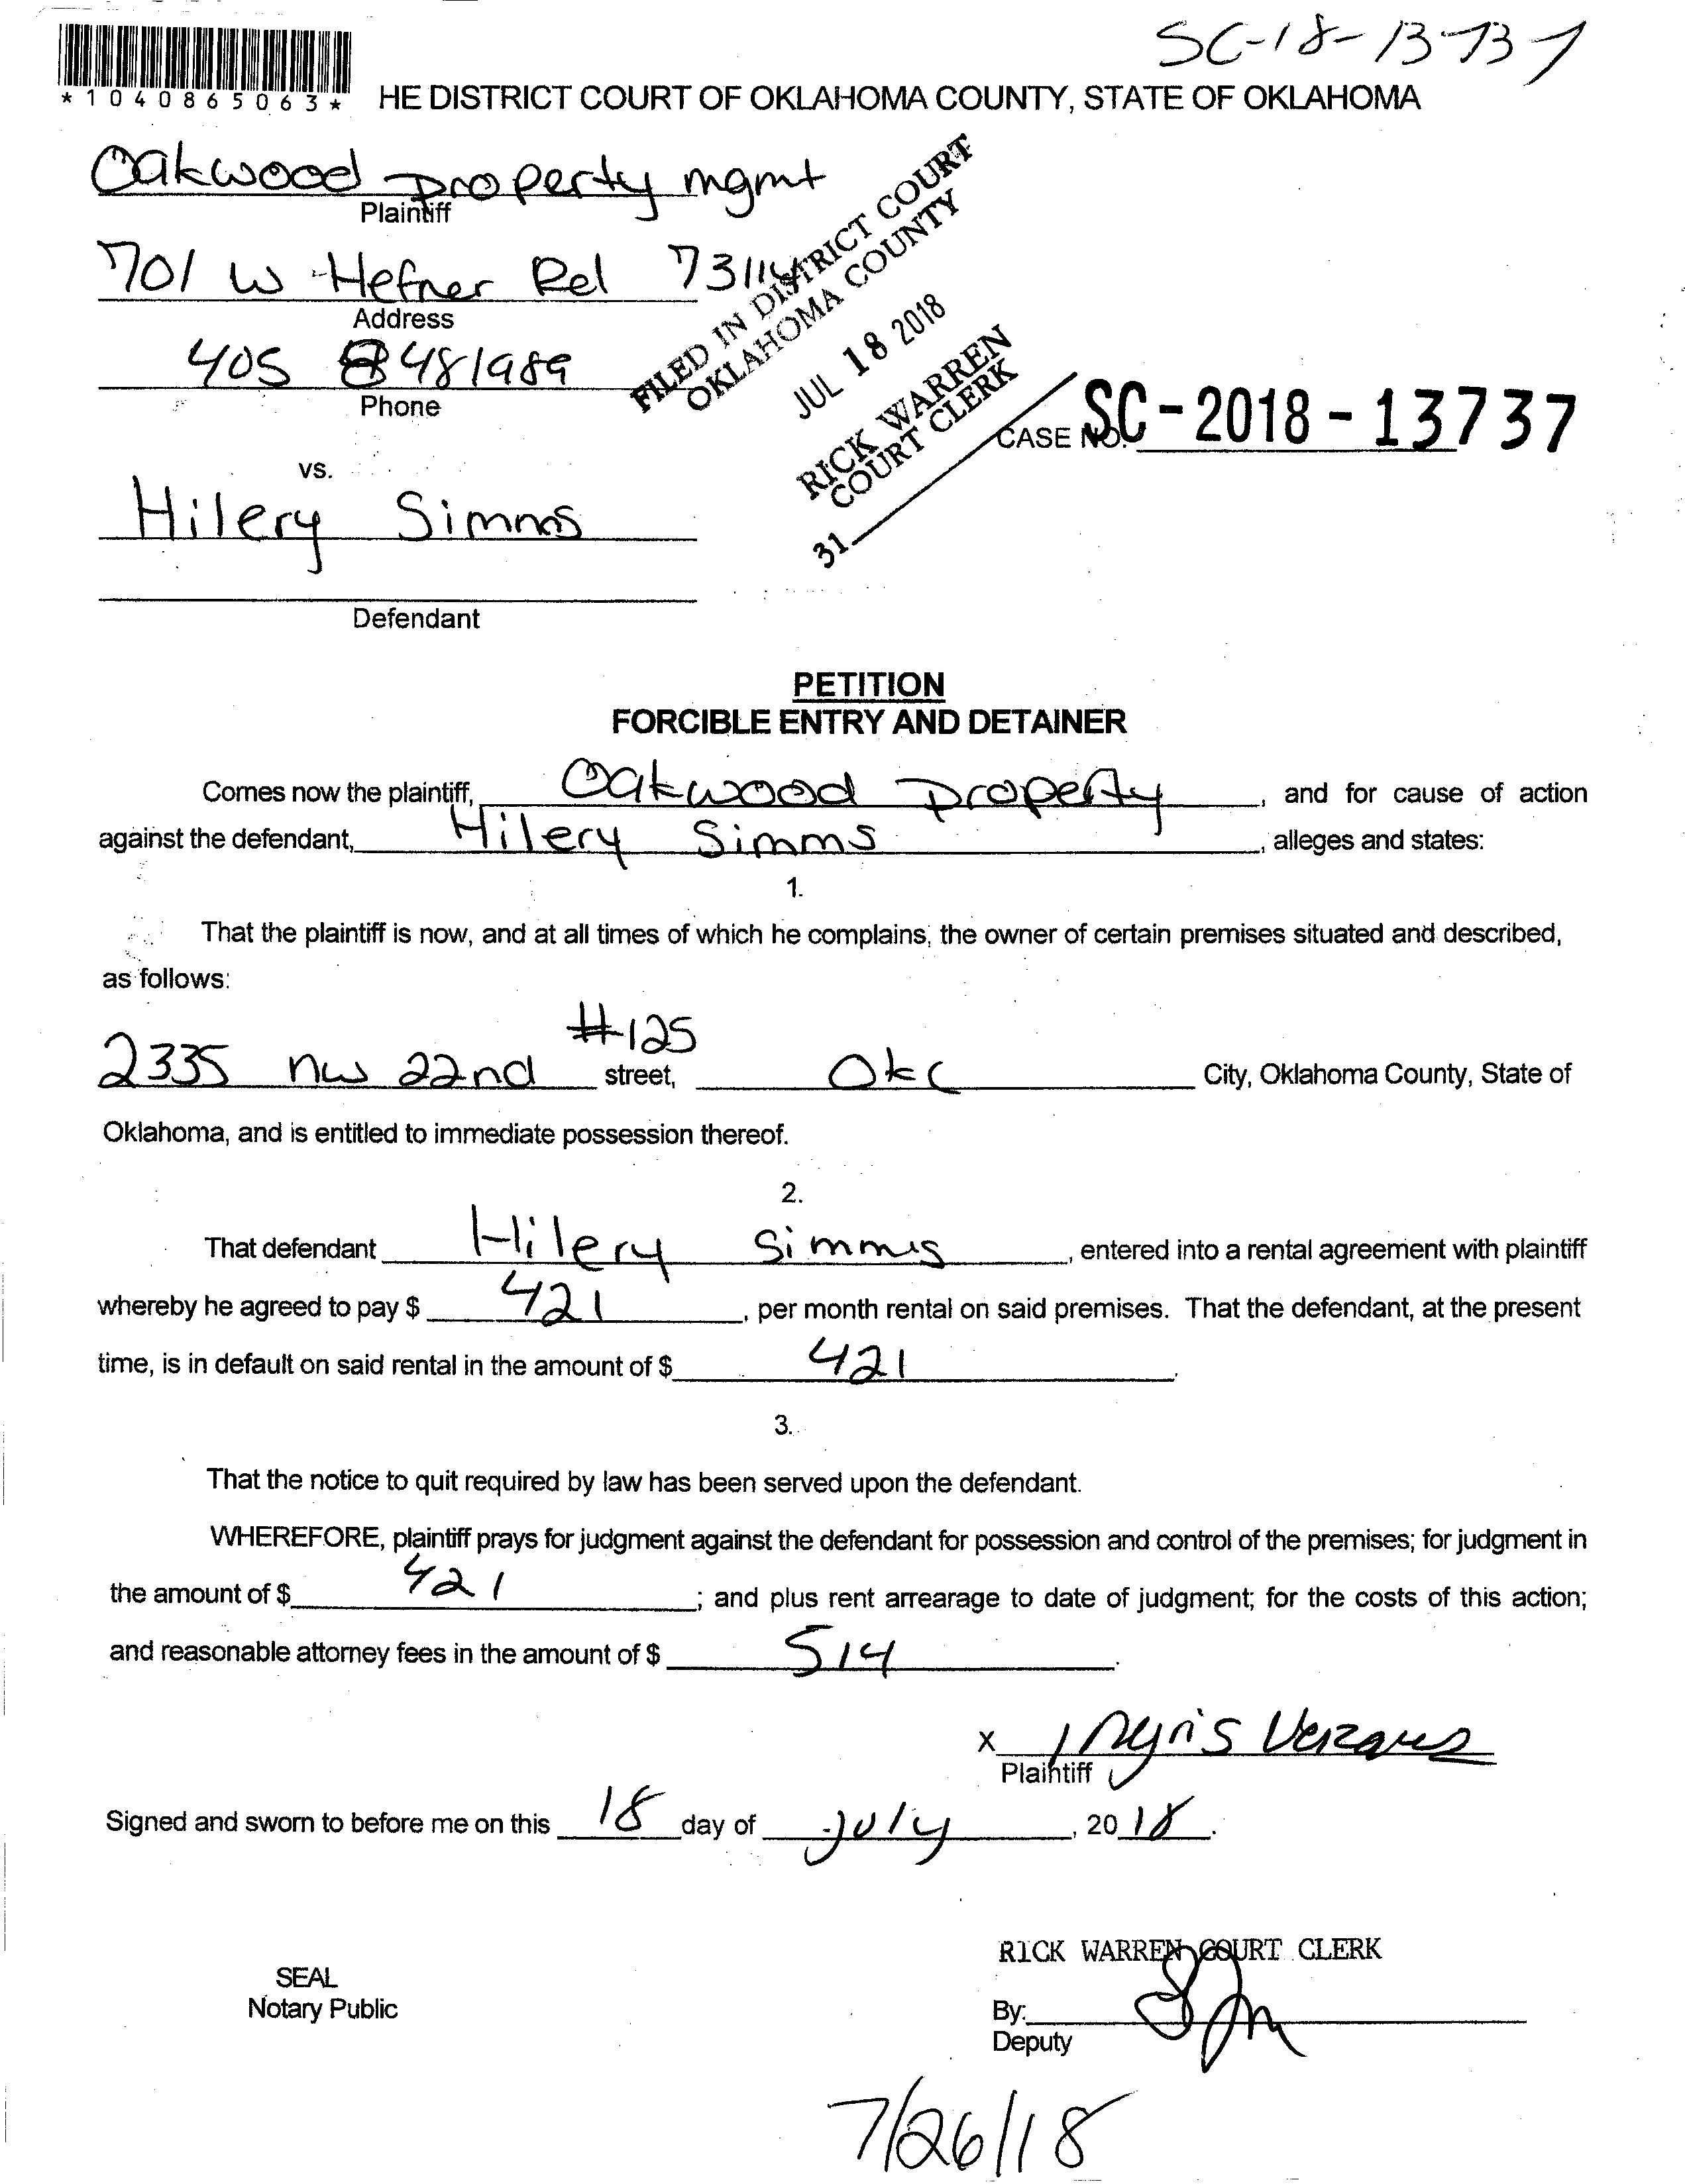 SC-18-13737
*1040865063*
HE DISTRICT COURT OF OKLAHOMA COUNTY, STATE OF OKLAHOMA
Oakwood Property mgmt
Plaintiff
701 W Hefner Rd 73114
Address
405 8481989
Phone
FILED IN DISTRICT COURT
OKLAHOMA COUNTY
JUL 18 2018
RICK WARREN
COURT CLERK
31
CASE NO. SC-2018-13737
vs.
Hilery Simms
Defendant
PETITION
FORCIBLE ENTRY AND DETAINER
Comes now the plaintiff, Oakwood Property, and for cause of action
against the defendant, Hilery Simms, alleges and states:
1.
That the plaintiff is now, and at all times of which he complains, the owner of certain premises situated and described,
as follows:
#125
2335 nw 22nd street, Okc City, Oklahoma County, State of
Oklahoma, and is entitled to immediate possession thereof.
2.
That defendant Hilery Simms, entered into a rental agreement with plaintiff
whereby he agreed to pay $ 421, per month rental on said premises. That the defendant, at the present
time, is in default on said rental in the amount of $ 421.
3.
That the notice to quit required by law has been served upon the defendant.
WHEREFORE, plaintiff prays for judgment against the defendant for possession and control of the premises; for judgment in
the amount of $ 421; and plus rent arrearage to date of judgment; for the costs of this action;
and reasonable attorney fees in the amount of $ 514.
X
Plaintiff
Signed and sworn to before me on this 18 day of July, 2018.
RICK WARREN COURT CLERK
SEAL
Notary Public
By:
Deputy
7/26/18